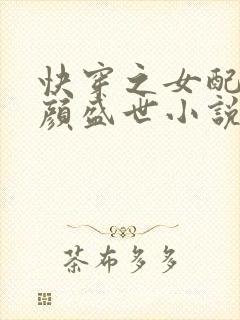 快穿之女配
顏盛世小說
茶布多多